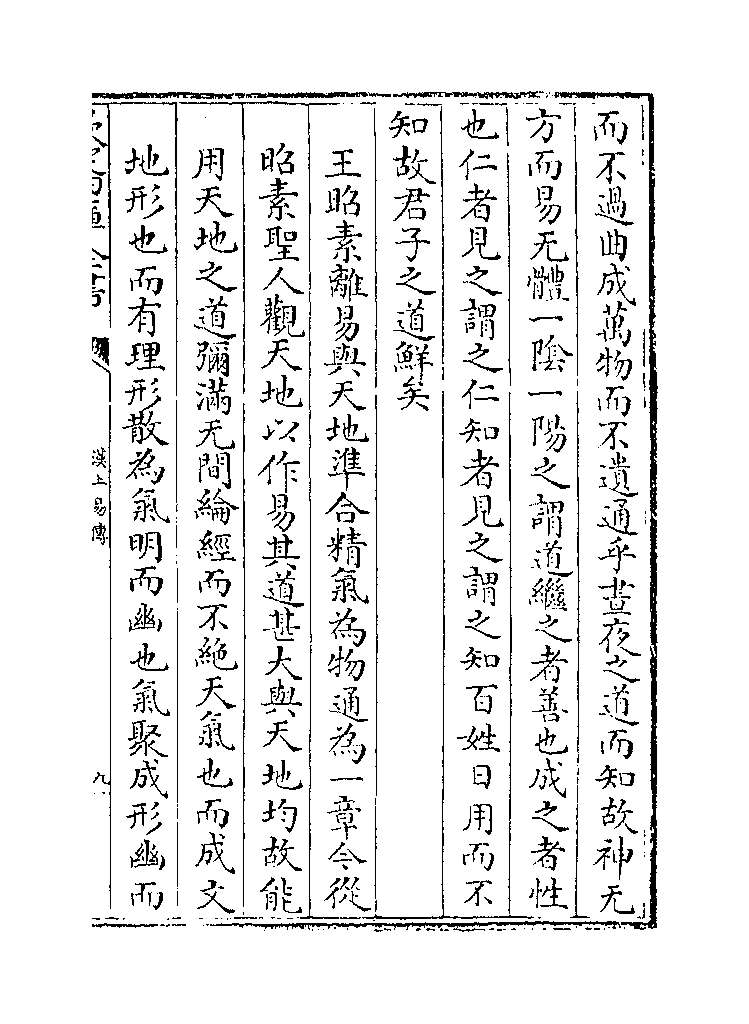 而不過曲成萬物而不遺通乎晝夜之道而知故神无
方而易无體一陰一陽之謂道繼之者善也成之者性
也仁者見之謂之仁知者見之謂之知百姓日用而不
知故君子之道鮮矣
王昭素離易與天地準合精氣為物通為一章今從
昭素聖人觀天地以作易其道甚大與天地均故能
用天地之道彌滿无間綸經而不絶天氣也而成文
地形也而有理形散為氣明而幽也氣聚成形幽而
漢上易傳
九